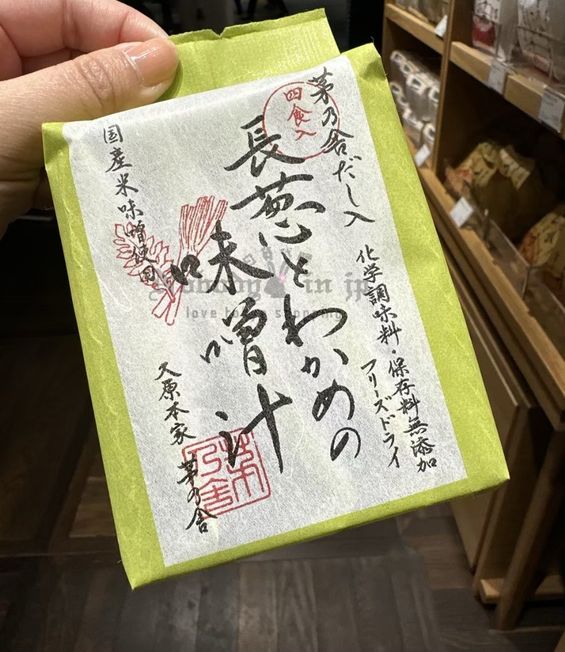 茅乃舎だし入
四食入
長葱とわかめの
味噌汁
国産米味噌使用
化学調味料・保存料無添加
フリーズドライ
久原本家 茅乃舎
茅乃舎
in jp